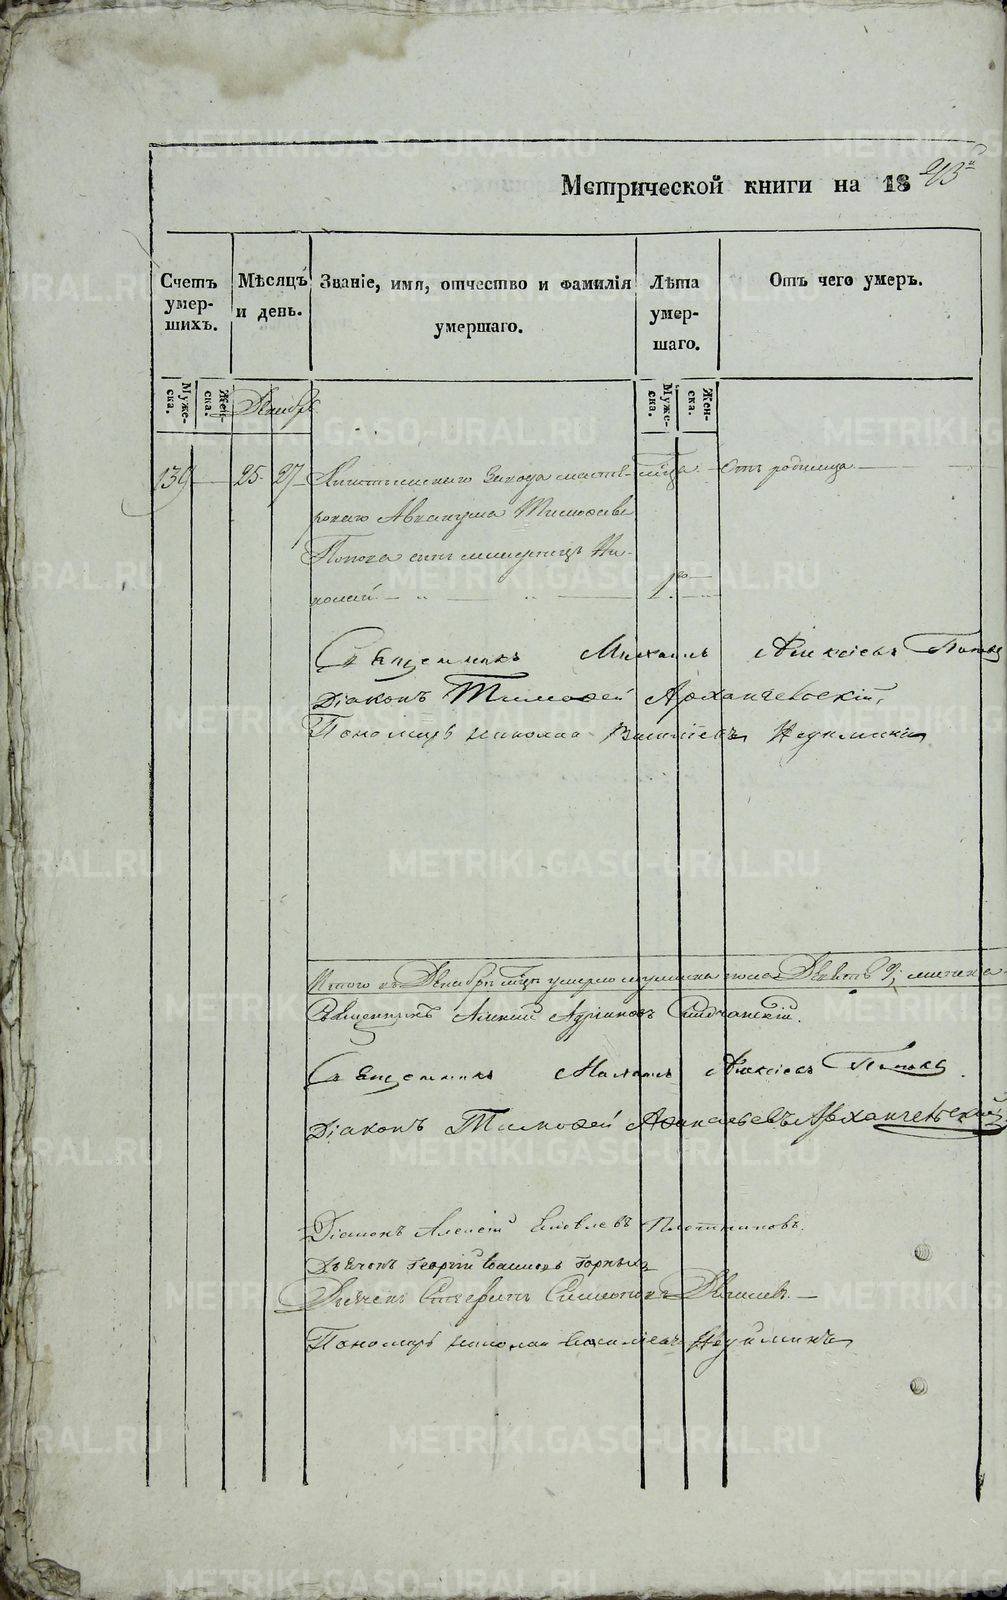 Метрической книги на 1843й
Счетъ умер-
шихъ.
Мѣсяцъ
и день.
Званіе, имя, отчество и фамилія
умершаго.
Лѣта
умер-
шаго.
Отъ чего умеръ.
Муже-
ска.
Жен-
ска.
Декабрь
Муже-
ска.
Жен-
ска.
139 25. 27 завода мастe- Отъ родимца
Аввакума Тимоѳеева
Попова сынъ младенецъ Ни-
колай
Священникъ Михаилъ Алексіевъ Поповъ
Діаконъ Тимоѳей Архангельскій,
Пономарь Николай Василіевъ
Итого въ Декабрѣ м-цѣ умерло мужеска пола Девять 9,
Священникъ Адріановъ
Священникъ Михаилъ Алексіевъ Поповъ
Діаконъ Тимоѳей Аѳанасьевъ Архангельскій
Діаконъ Алексій Іаковлевъ Плотниковъ.
Дьячекъ Георгій Іоанновъ Горныхъ
Дьячекъ Симеоновъ
Пономарь Николай Василіевъ
METRIKI.GASO-URAL.RU